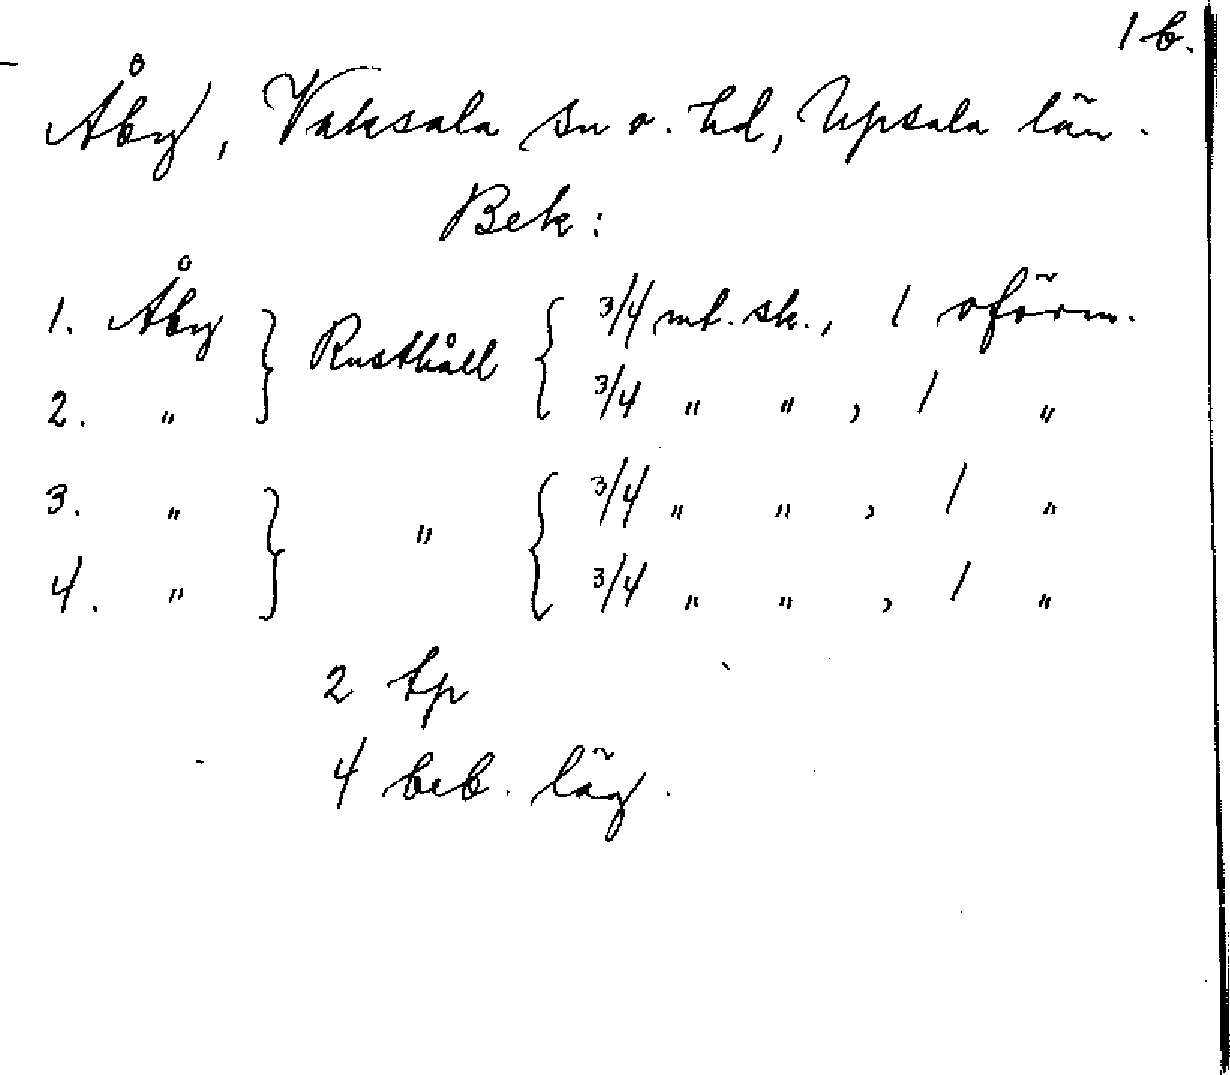 1 b.
Åby, Vaksala sn o. hd, Upsala län.
Bek:
1. Åby } Rusthåll { 3/4 mt. sk., 1 oförm.
2. " } { 3/4 " " , 1 "
3. " } " { 3/4 " " , 1 "
4. " } { 3/4 " " , 1 "
2 tp
4 beb. läg.